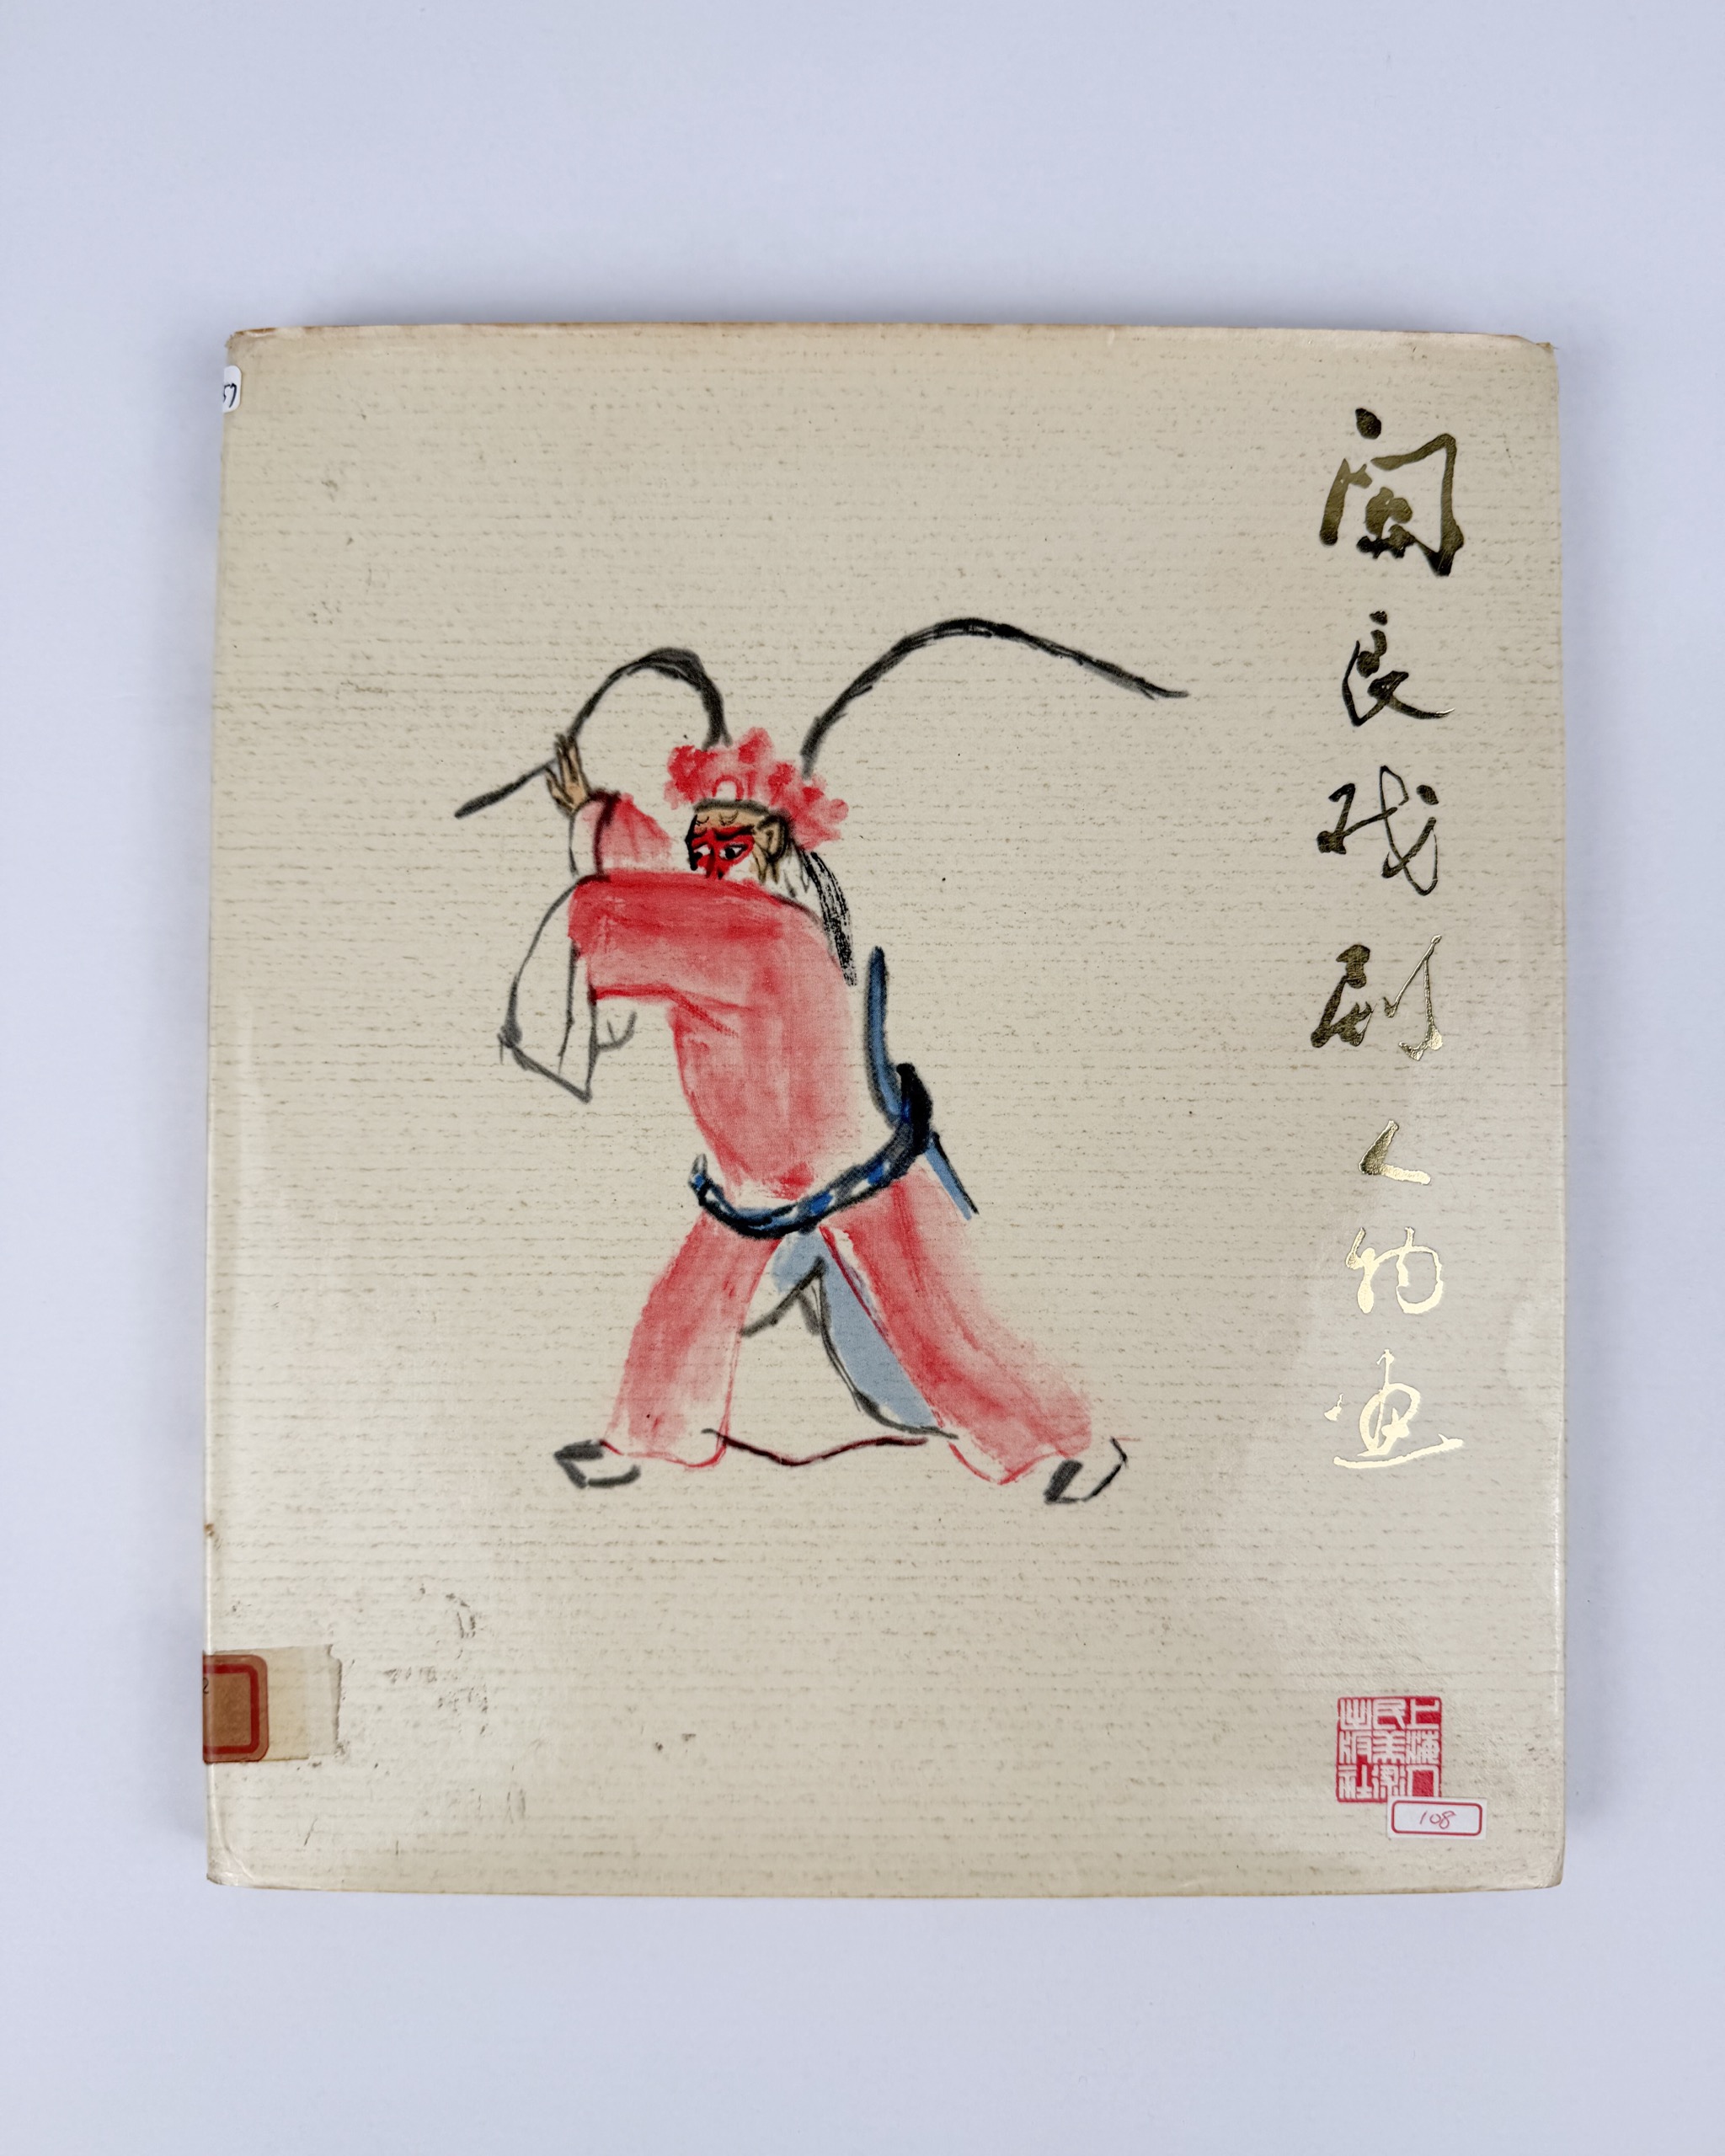 關良戏剧人物画
上海人
民美術
出版社
108
57
2